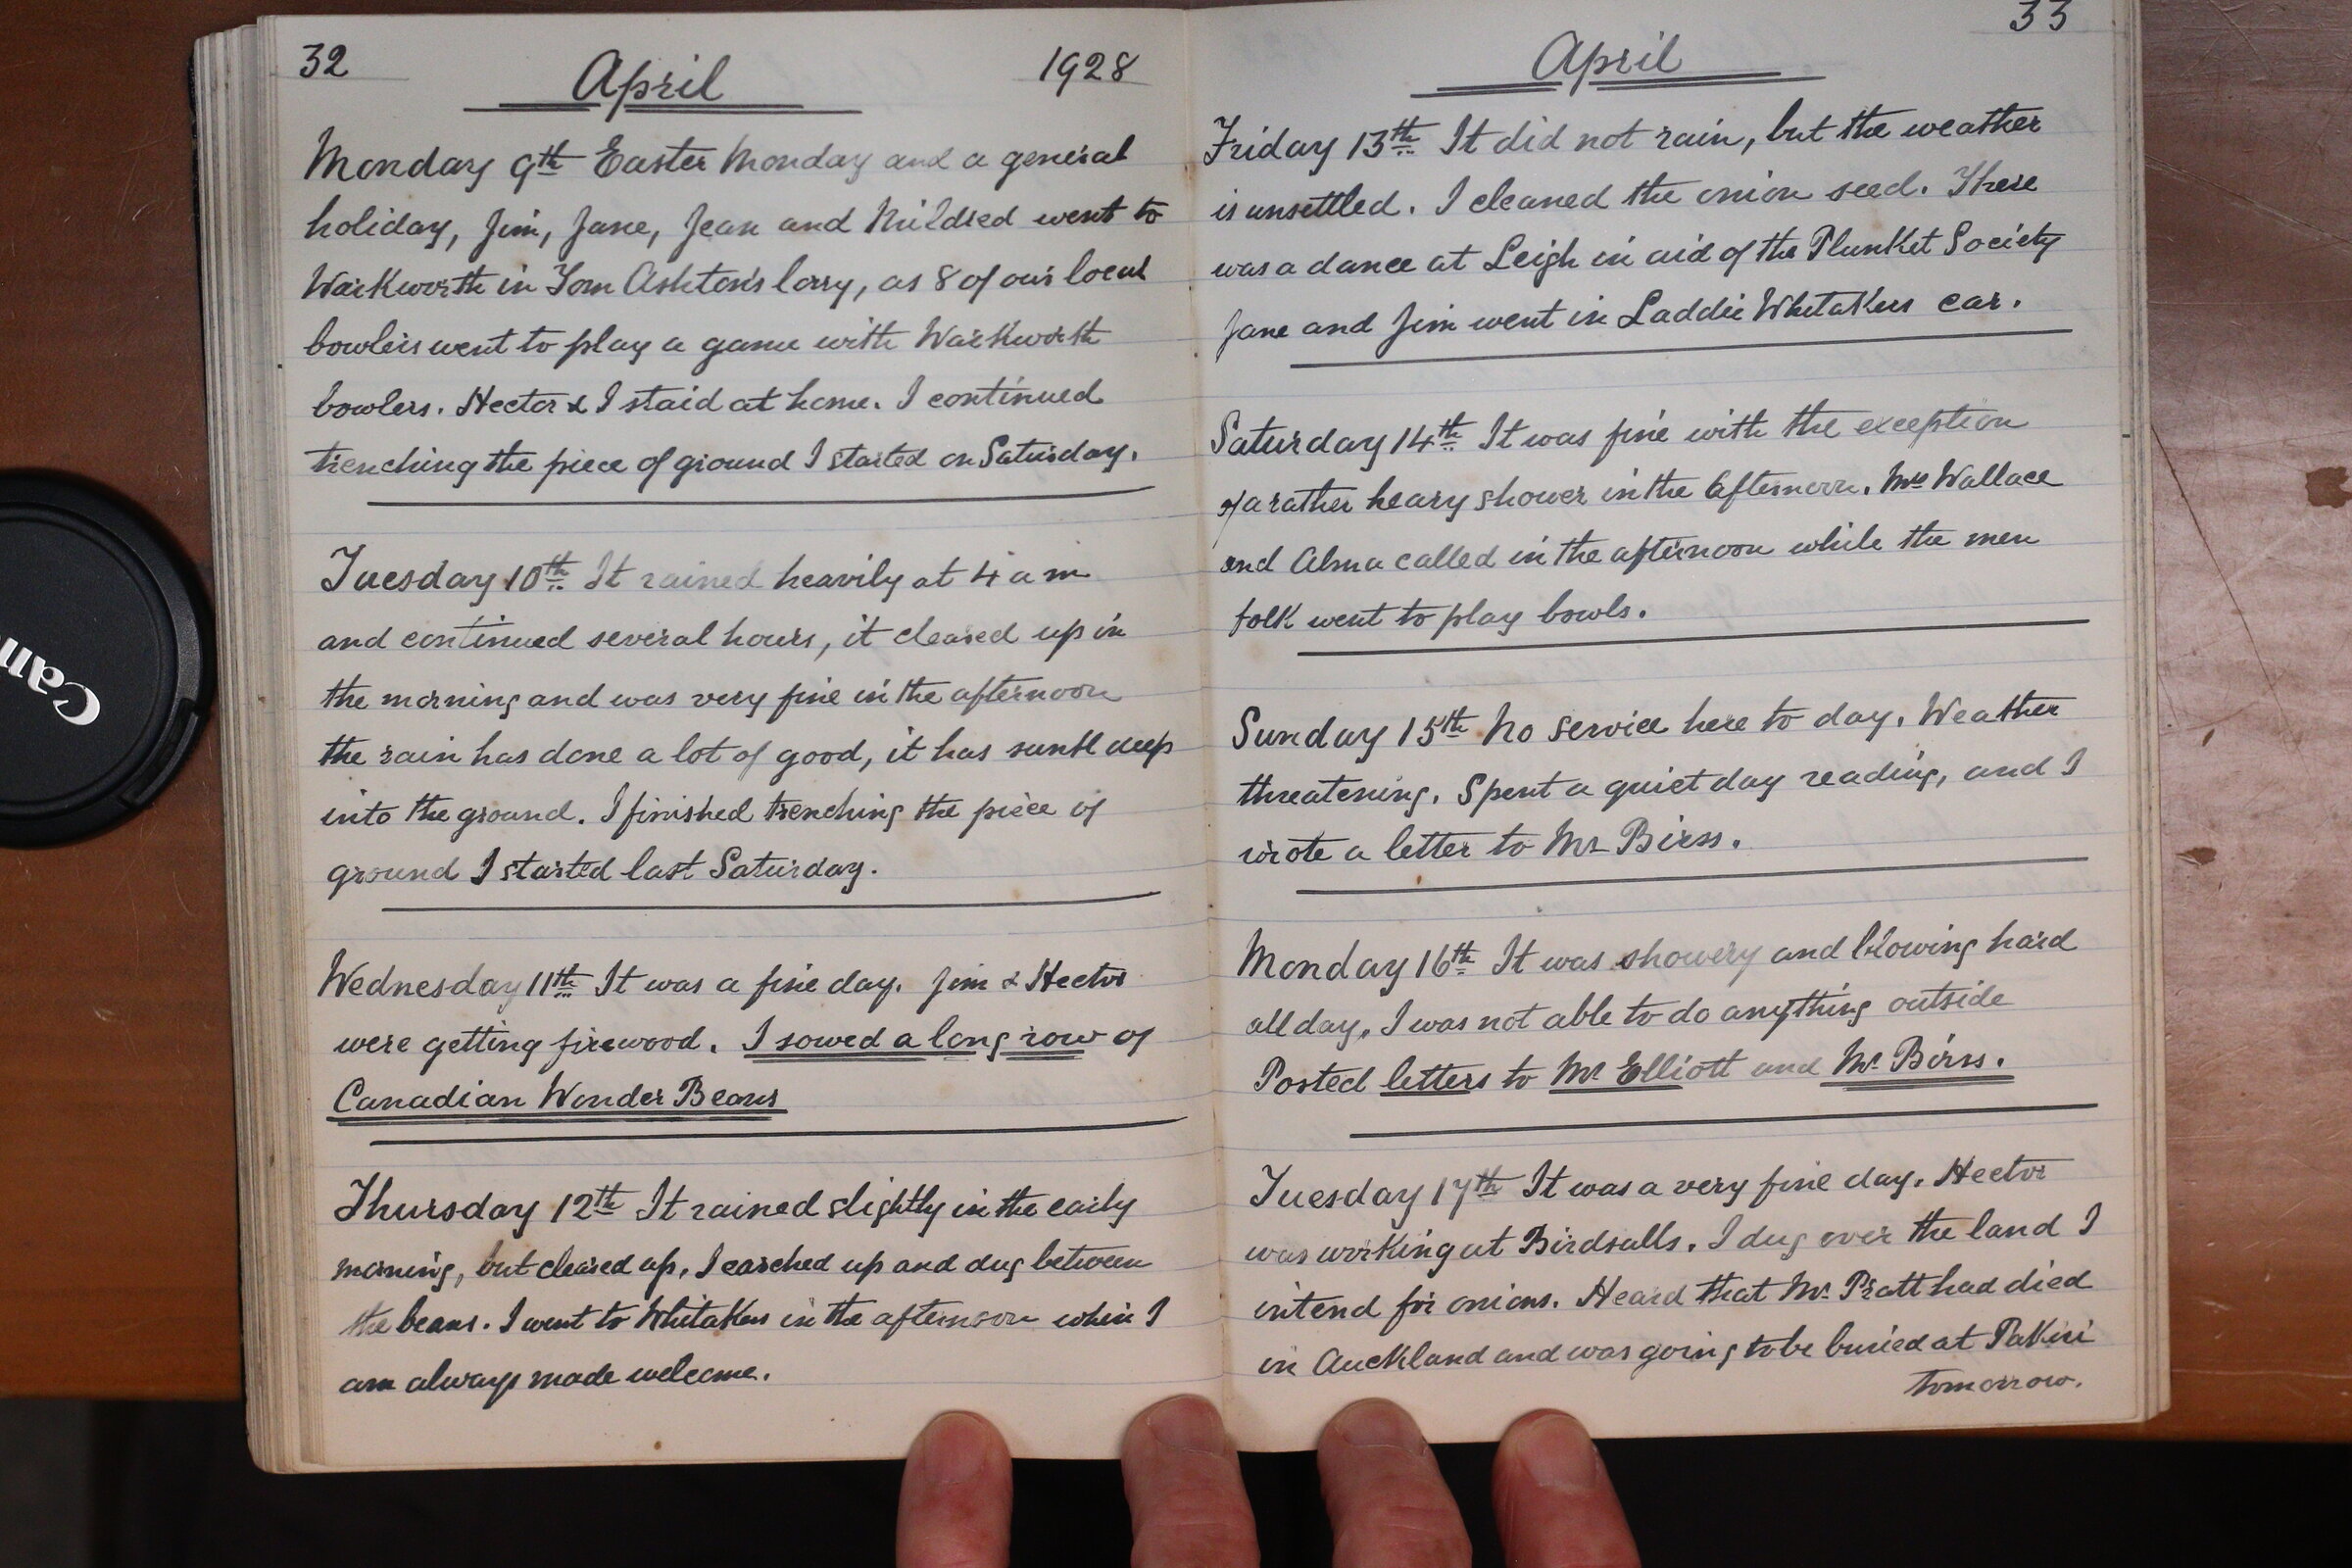 32
April
1928
Monday 9th Easter Monday and a general
holiday, Jim, Jane, Jean and Mildred went to
Warkworth in Tom Ashton's lorry, as 8 of our local
bowlers went to play a game with Warkworth
bowlers. Hector & I staid at home. I continued
trenching the piece of ground I started on Saturday.
Tuesday 10th It rained heavily at 4 a m
and continued several hours, it cleared up in
the morning and was very fine in the afternoon
the rain has done a lot of good, it has sunk deep
into the ground. I finished trenching the piece of
ground I started last Saturday.
Wednesday 11th It was a fine day. Jim & Hector
were getting firewood. I sowed a long row of
Canadian Wonder Beans
Thursday 12th It rained slightly in the early
morning, but cleared up, I earthed up and dug between
the beans. I went to Whitakers in the afternoon when I
am always made welcome.
33
April
Friday 13th It did not rain, but the weather
is unsettled. I cleaned the onion seed. There
was a dance at Leigh in aid of the Plunket Society
Jane and Jim went in Laddie Whitakers car.
Saturday 14th It was fine with the exception
of a rather heavy shower in the afternoon. Mrs Wallace
and Alma called in the afternoon while the men
folk went to play bowls.
Sunday 15th No service here to day. Weather
threatening. Spent a quiet day reading, and I
wrote a letter to Mr Birss.
Monday 16th It was showery and blowing hard
all day, I was not able to do anything outside
Posted letters to Mr Elliott and Mr Birss.
Tuesday 17th It was a very fine day. Hector
was working at Birdsalls. I dug over the land I
intend for onions. Heard that Mr Pratt had died
in Auckland and was going to be buried at Pakiri
tomorrow.
Can